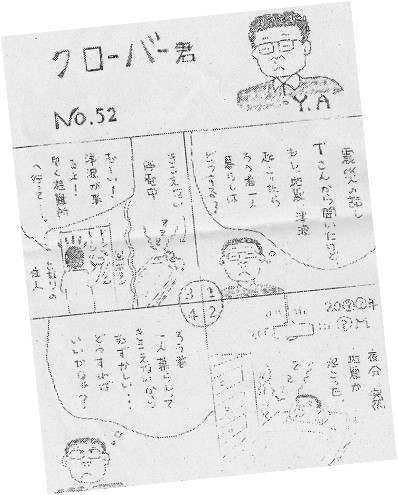 クローバー君
No.52
Y.A
震災の話し
Tさんから聞いたけど、
もし地震 津波
起こったら
ろう者一人
暮らしは
どうする?
①
20〇〇年
〇月
夜分 突然
地震が
起こった
②
きこえない
停電中
おーい!
津波が来
るよ!
早く避難所
へ行って
となりの
住人
③
ろう者
一人暮らしで
きこえないから
むずかしい…
どうすれば
いいかなぁ?
④